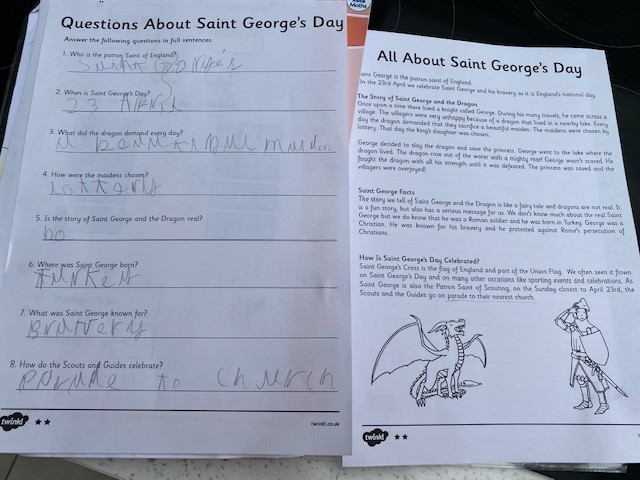 Questions About Saint George's Day
Answer the following questions in full sentences.
1. Who is the patron Saint of England?
2. When is Saint George's Day?
23
3. What did the dragon demand every day?
maiden
4. How were the maidens chosen?
5. Is the story of Saint George and the Dragon real?
no
6. Where was Saint George born?
7. What was Saint George known for?
8. How do the Scouts and Guides celebrate?
parade to church
twinkl
twinkl.co.uk
Maths
All About Saint George's Day
Saint George is the patron saint of England.
On the 23rd April we celebrate Saint George and his bravery as it is England's national day.
The Story of Saint George and the Dragon
Once upon a time there lived a knight called George. During his many travels, he came across a
village. The villagers were very unhappy because of a dragon that lived in a nearby lake. Every
day the dragon demanded that they sacrifice a beautiful maiden. The maidens were chosen by
lottery. That day the king's daughter was chosen.
George decided to slay the dragon and save the princess. George went to the lake where the
dragon lived. The dragon rose out of the water with a mighty roar! George wasn't scared. He
fought the dragon with all his strength until it was defeated. The princess was saved and the
villagers were overjoyed!
Saint George Facts
The story we tell of Saint George and the Dragon is like a fairy tale and dragons are not real. It
is a fun story, but also has a serious message for us. We don't know much about the real Saint
George but we do know that he was a Roman soldier and he was born in Turkey. George was a
Christian. He was known for his bravery and he protested against Rome's persecution of
Christians.
How Is Saint George's Day Celebrated?
Saint George's Cross is the flag of England and part of the Union Flag. We often see it flown
on Saint George's Day and on many other occasions like sporting events and celebrations. As
Saint George is also the Patron Saint of Scouting, on the Sunday closest to April 23rd, the
Scouts and the Guides go on parade to their nearest church.
twinkl